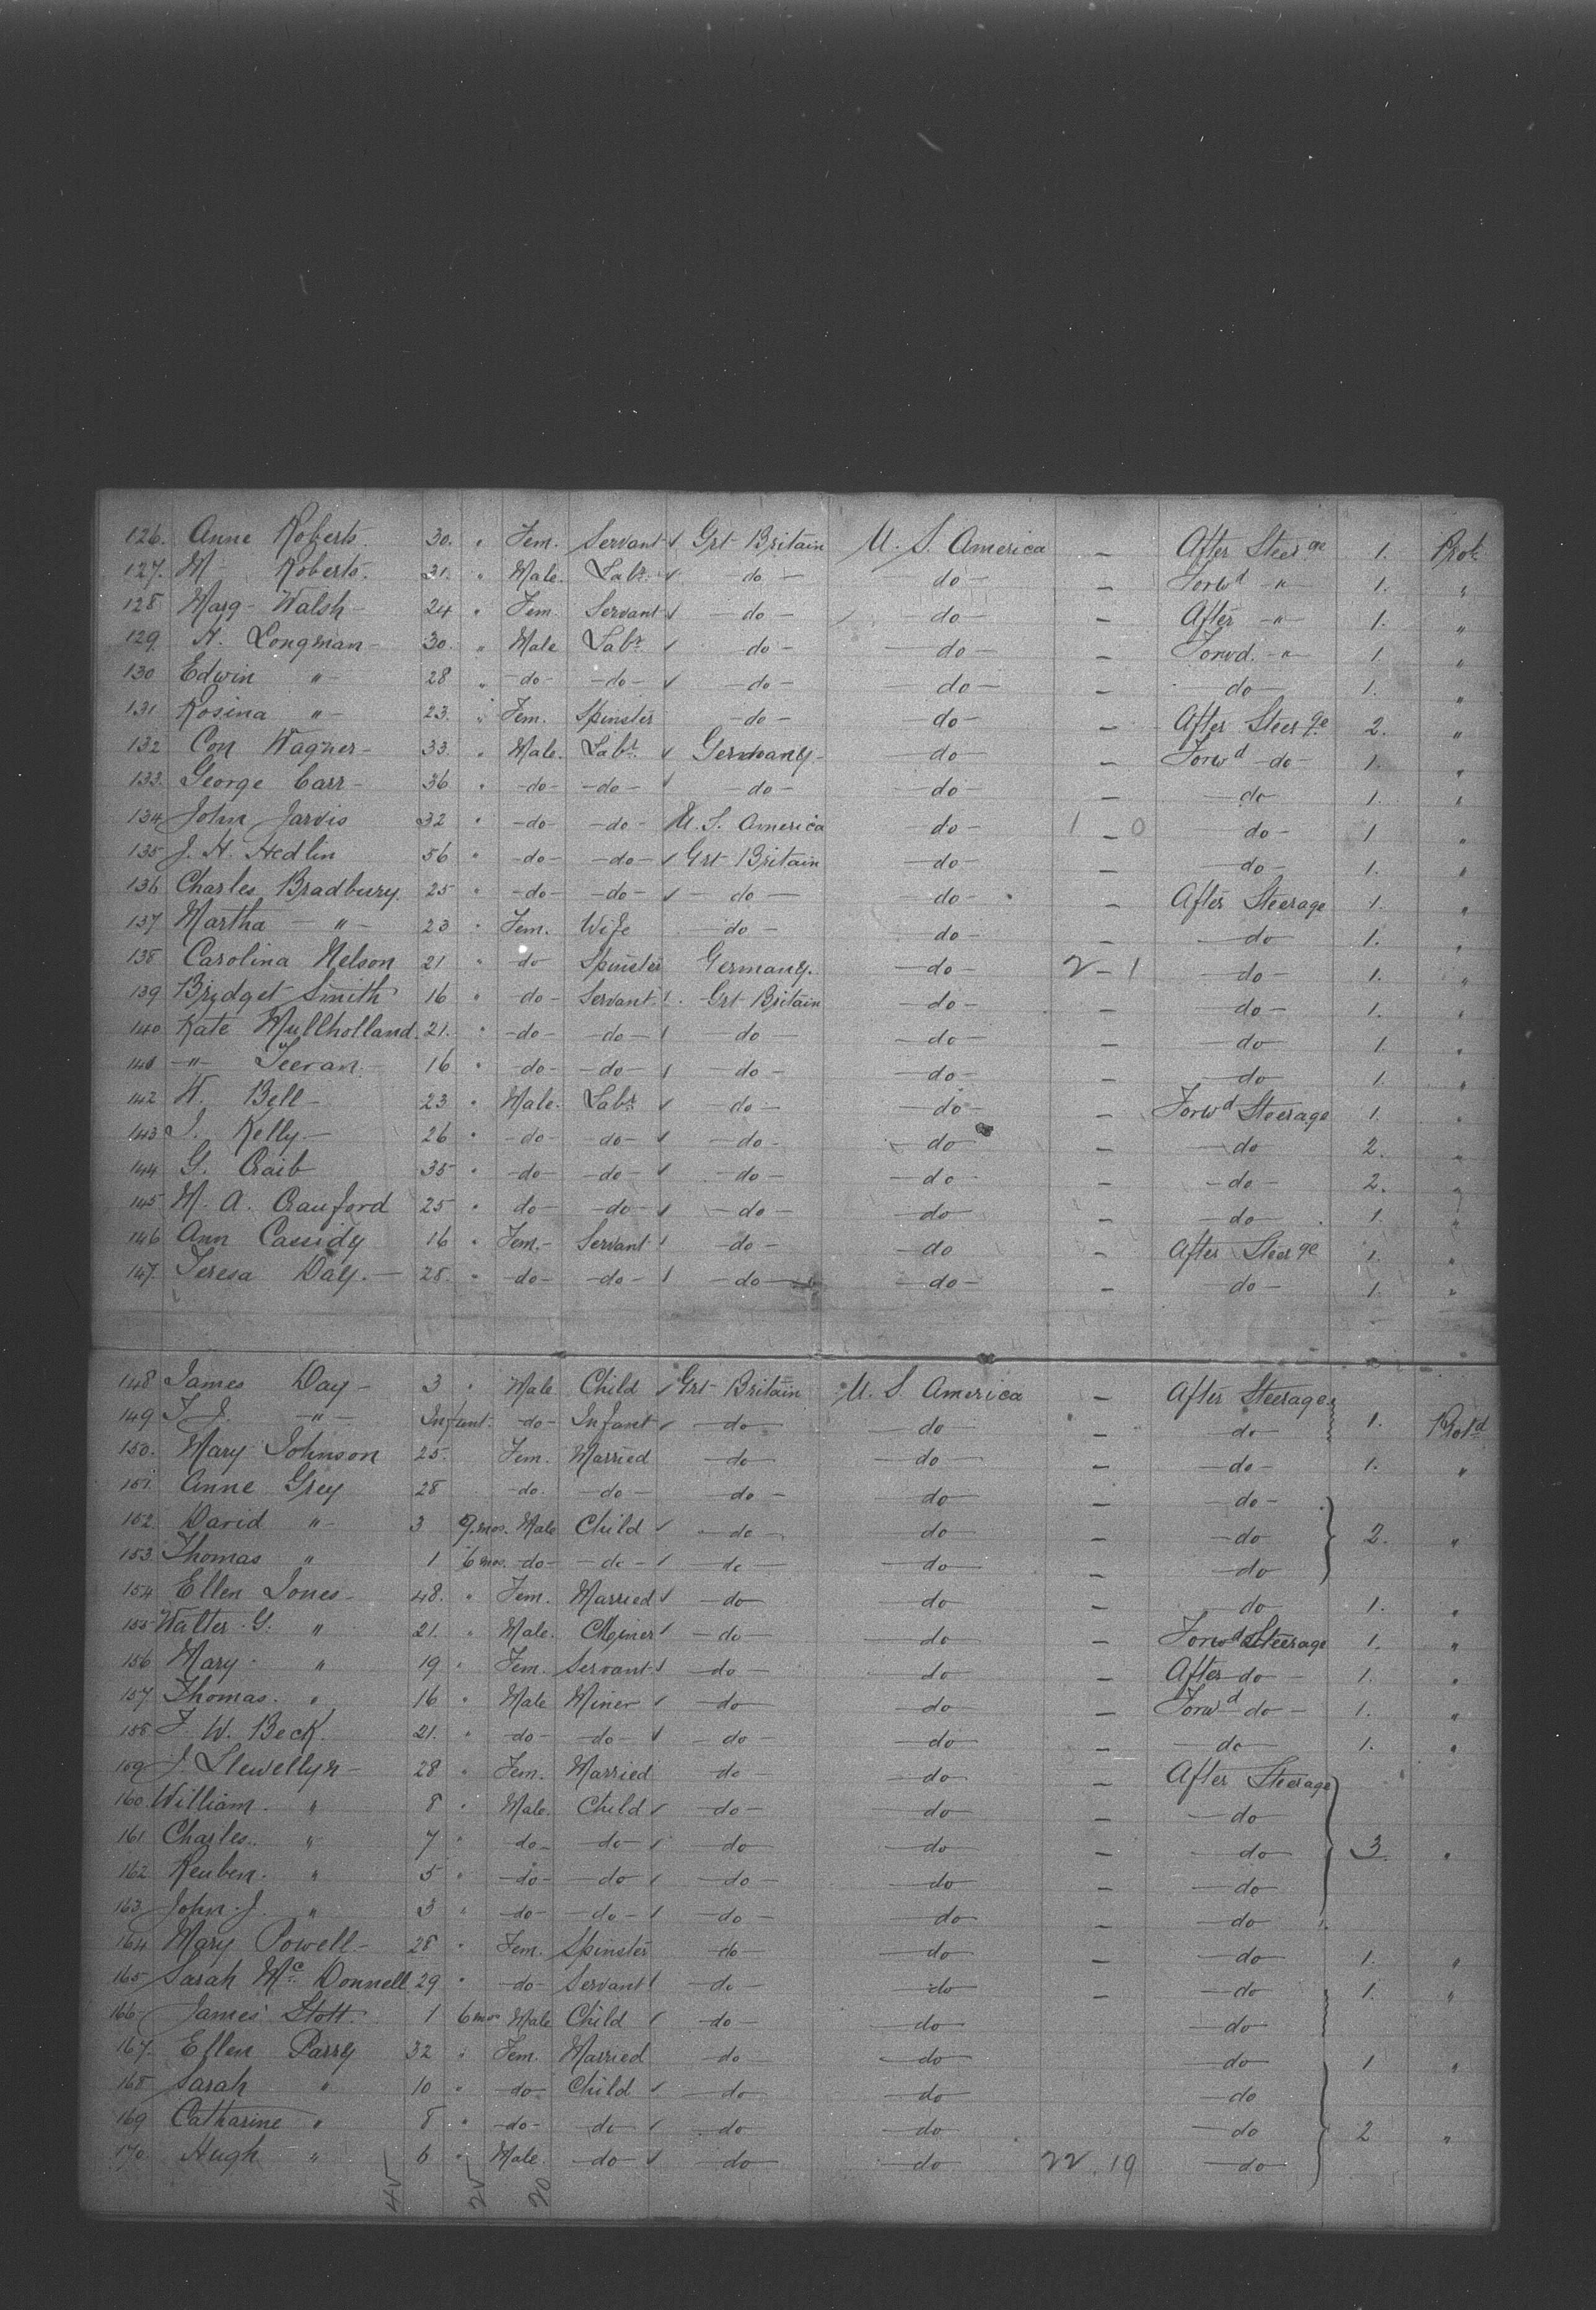 126. Anne Roberts. 30. " Fem. Servant ✓ Grt Britain U. S. America — After Steerge 1. Prot.
127. M Roberts. 31. " Male. Labr. ✓ do — do — — Forwd — " 1. "
128 Marg - Walsh - 24 " Fem. Servant ✓ — do — do — — After — " 1. "
129. H. Longman - 30. " Male Labr. ✓ do — — do — — Forwd. — " 1. "
130 Edwin " — 28 " — do — — do — ✓ — do — — do — — do — 1. "
131 Rosina " — 23. " Fem. Spinster — do — do — — After Steerge 2. "
132 Con Wagner - 33. " Male. Labr. ✓ Germany - — do — — Forwd — do — 1. "
133. George Carr - 36 " — do — — do — ✓ — do — — do — — do 1. "
134 John Jarvis 32 " — do — — do — U. S. America do — 1 — 0 do — 1 "
135 J. H. Hedlin 56 " — do — — do — ✓ Grt Britain — do — — do — 1. "
136 Charles Bradbury. 25 " — do — — do — ✓ — do — do — — After Steerage 1. "
137 Martha — " — 23 " Fem. Wife do — do — — — do 1. "
138 Carolina Nelson 21 " do Spinster Germany. — do — 2 — 1 — do — 1. "
139 Bridget Smith 16 " — do — Servant ✓ Grt Britain — do — — — do — 1. "
140 Kate Mullholland. 21. " — do — — do — ✓ do — — do — — — do 1. "
141 — " — Teevan. 16 " — do — — do — ✓ — do — — do — — — do 1. "
142 W. Bell - 23 " Male. Labr. ✓ — do — — do — — Forwd Steerage 1. "
143 J. Kelly. — 26 " — do — — do — ✓ — do — — do — — do 2. "
144 G. Craib 35 " — do — — do — ✓ — do — — do — — do — 2. "
145 M. A. Crauford 25 " do — — do — ✓ — do — — do — — do 1. "
146 Ann Cassidy 16 " Fem. — Servant ✓ — do — — do — After Steerge 1. "
147. Teresa Day. — 28. " — do — — do — ✓ — do — — do — — — do — 1. "
148 James Day - 3 " Male Child ✓ Grt Britain U. S. America — After Steerage
149 T J. — " — Infant. — do — Infant ✓ — do — do — do 1. Protd
150. Mary Johnson 25. Fem. Married — do — do — — do — 1. "
151 Anne Grey 28 — do. — do — — do — do — — do —
152 David " — 3 9. mos. Male Child ✓ — do — do — — do 2. "
153 Thomas " 1 6 mos. — do — — do — ✓ — do — do — — do
154 Ellen Jones - 48. " Fem. Married ✓ — do — do — — do 1. "
155 Walter G. " 21. " Male. Miner ✓ — do — — do — Forwd Steerage 1. "
156 Mary - " 19 " Fem. Servant ✓ — do — — do — After — do — 1. "
157 Thomas. " 16 " Male Miner ✓ — do — do — Forwd do — 1. "
158 F. W. Beck. 21. " — do — — do — ✓ — do — — do — — do 1. "
159 J. Llewellyn - 28 " Fem. Married do — — do — After Steerage
160 William. " 8 " Male. Child ✓ — do — — do — — do
161 Charles. " 7 " — do — — do ✓ do — do — — do 3. "
162 Reuben. " 5 " — do — — do ✓ — do — — do — — do
163 John. J. " 3 " — do — — do — ✓ — do — do — — do
164 Mary Powell - 28 " Fem. Spinster do — do — — do 1. "
165 Sarah Mc Donnell 29 " — do — Servant ✓ — do — — do — — do 1. "
166 James Stott. 1 6 mos Male Child ✓ — do — — do — do
167. Ellen Parry 32 " Fem. Married — do — do do 1 "
168 Sarah " 10 " — do — Child ✓ — do — do — do
169 Catharine " 8 " — do — do ✓ — do — do — do 2 "
170 Hugh " 6 " Male. — do — ✓ — do — do 22. 19 — do
45 25 20